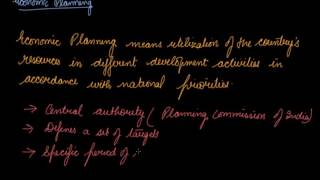 Economic Planning
Economic Planning means utilization of the country's
resources in different development activities in
accordance with national priorities.
→ Central authority (Planning Commission of India)
→ Defines a set of targets
→ Specific period of